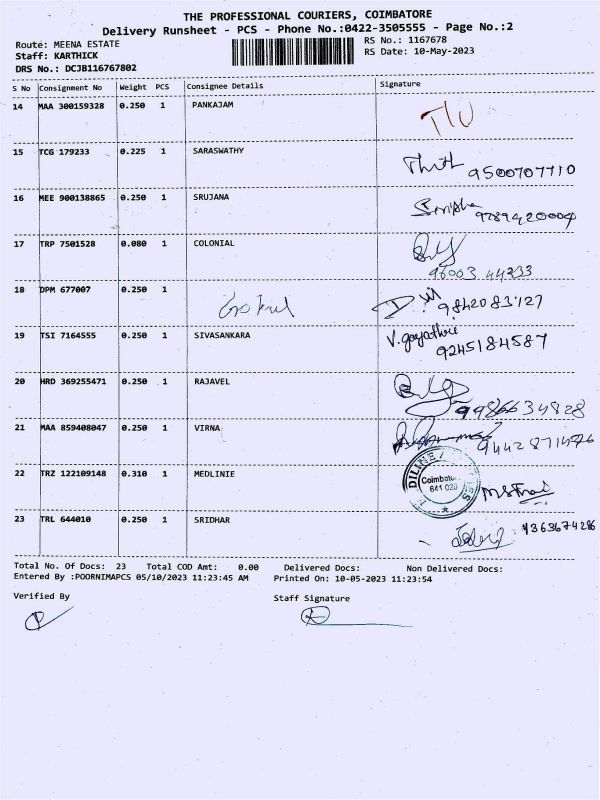 THE PROFESSIONAL COURIERS, COIMBATORE
Delivery Runsheet - PCS - Phone No.:0422-3505555 - Page No.:2
Route: MEENA ESTATE RS No.: 1167678
Staff: KARTHICK RS Date: 10-May-2023
DRS No.: DCJB116767802
S No Consignment No Weight PCS Consignee Details Signature
14 MAA 300159328 0.250 1 PANKAJAM
15 TCG 179233 0.225 1 SARASWATHY
9500707710
16 MEE 900138865 0.250 1 SRUJANA
9789420004
17 TRP 7501528 0.080 1 COLONIAL
96003 44233
18 DPM 677007 0.250 1
9842083727
19 TSI 7164555 0.250 1 SIVASANKARA V. gayathri
9245184587
20 HRD 369255471 0.250 1 RAJAVEL
21 MAA 859408047 0.250 1 VIRNA
22 TRZ 122109148 0.310 1 MEDLINIE
Coimbatore
641 020
23 TRL 644010 0.250 1 SRIDHAR
Total No. Of Docs: 23 Total COD Amt: 0.00 Delivered Docs: Non Delivered Docs:
Entered By :POORNIMAPCS 05/10/2023 11:23:45 AM Printed On: 10-05-2023 11:23:54
Verified By Staff Signature